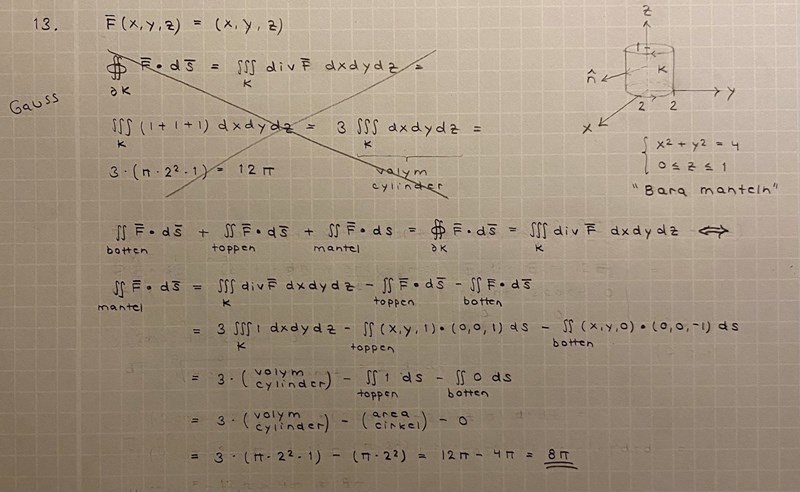 13. F̄(x,y,z) = (x,y,z)
∯_∂K F̄•ds̄ = ∭_K div F̄ dxdydz =
Gauss
∭_K (1+1+1) dxdydz = 3 ∭_K dxdydz =
3·(π·2²·1) = 12π
volym cylinder
z
1
K
n̂
2
2
y
x
{ x²+y² = 4
0 ≤ z ≤ 1
"Bara manteln"
∬_botten F̄•ds̄ + ∬_toppen F̄•ds̄ + ∬_mantel F̄•ds = ∯_∂K F̄•ds̄ = ∭_K div F̄ dxdydz ⟺
∬_mantel F̄•ds̄ = ∭_K div F̄ dxdydz − ∬_toppen F̄•ds̄ − ∬_botten F̄•ds̄
= 3 ∭_K 1 dxdydz − ∬_toppen (x,y,1)•(0,0,1) ds − ∬_botten (x,y,0)•(0,0,-1) ds
= 3·(volym cylinder) − ∬_toppen 1 ds − ∬_botten 0 ds
= 3·(volym cylinder) − (area cirkel) − 0
= 3·(π·2²·1) − (π·2²) = 12π − 4π = 8π